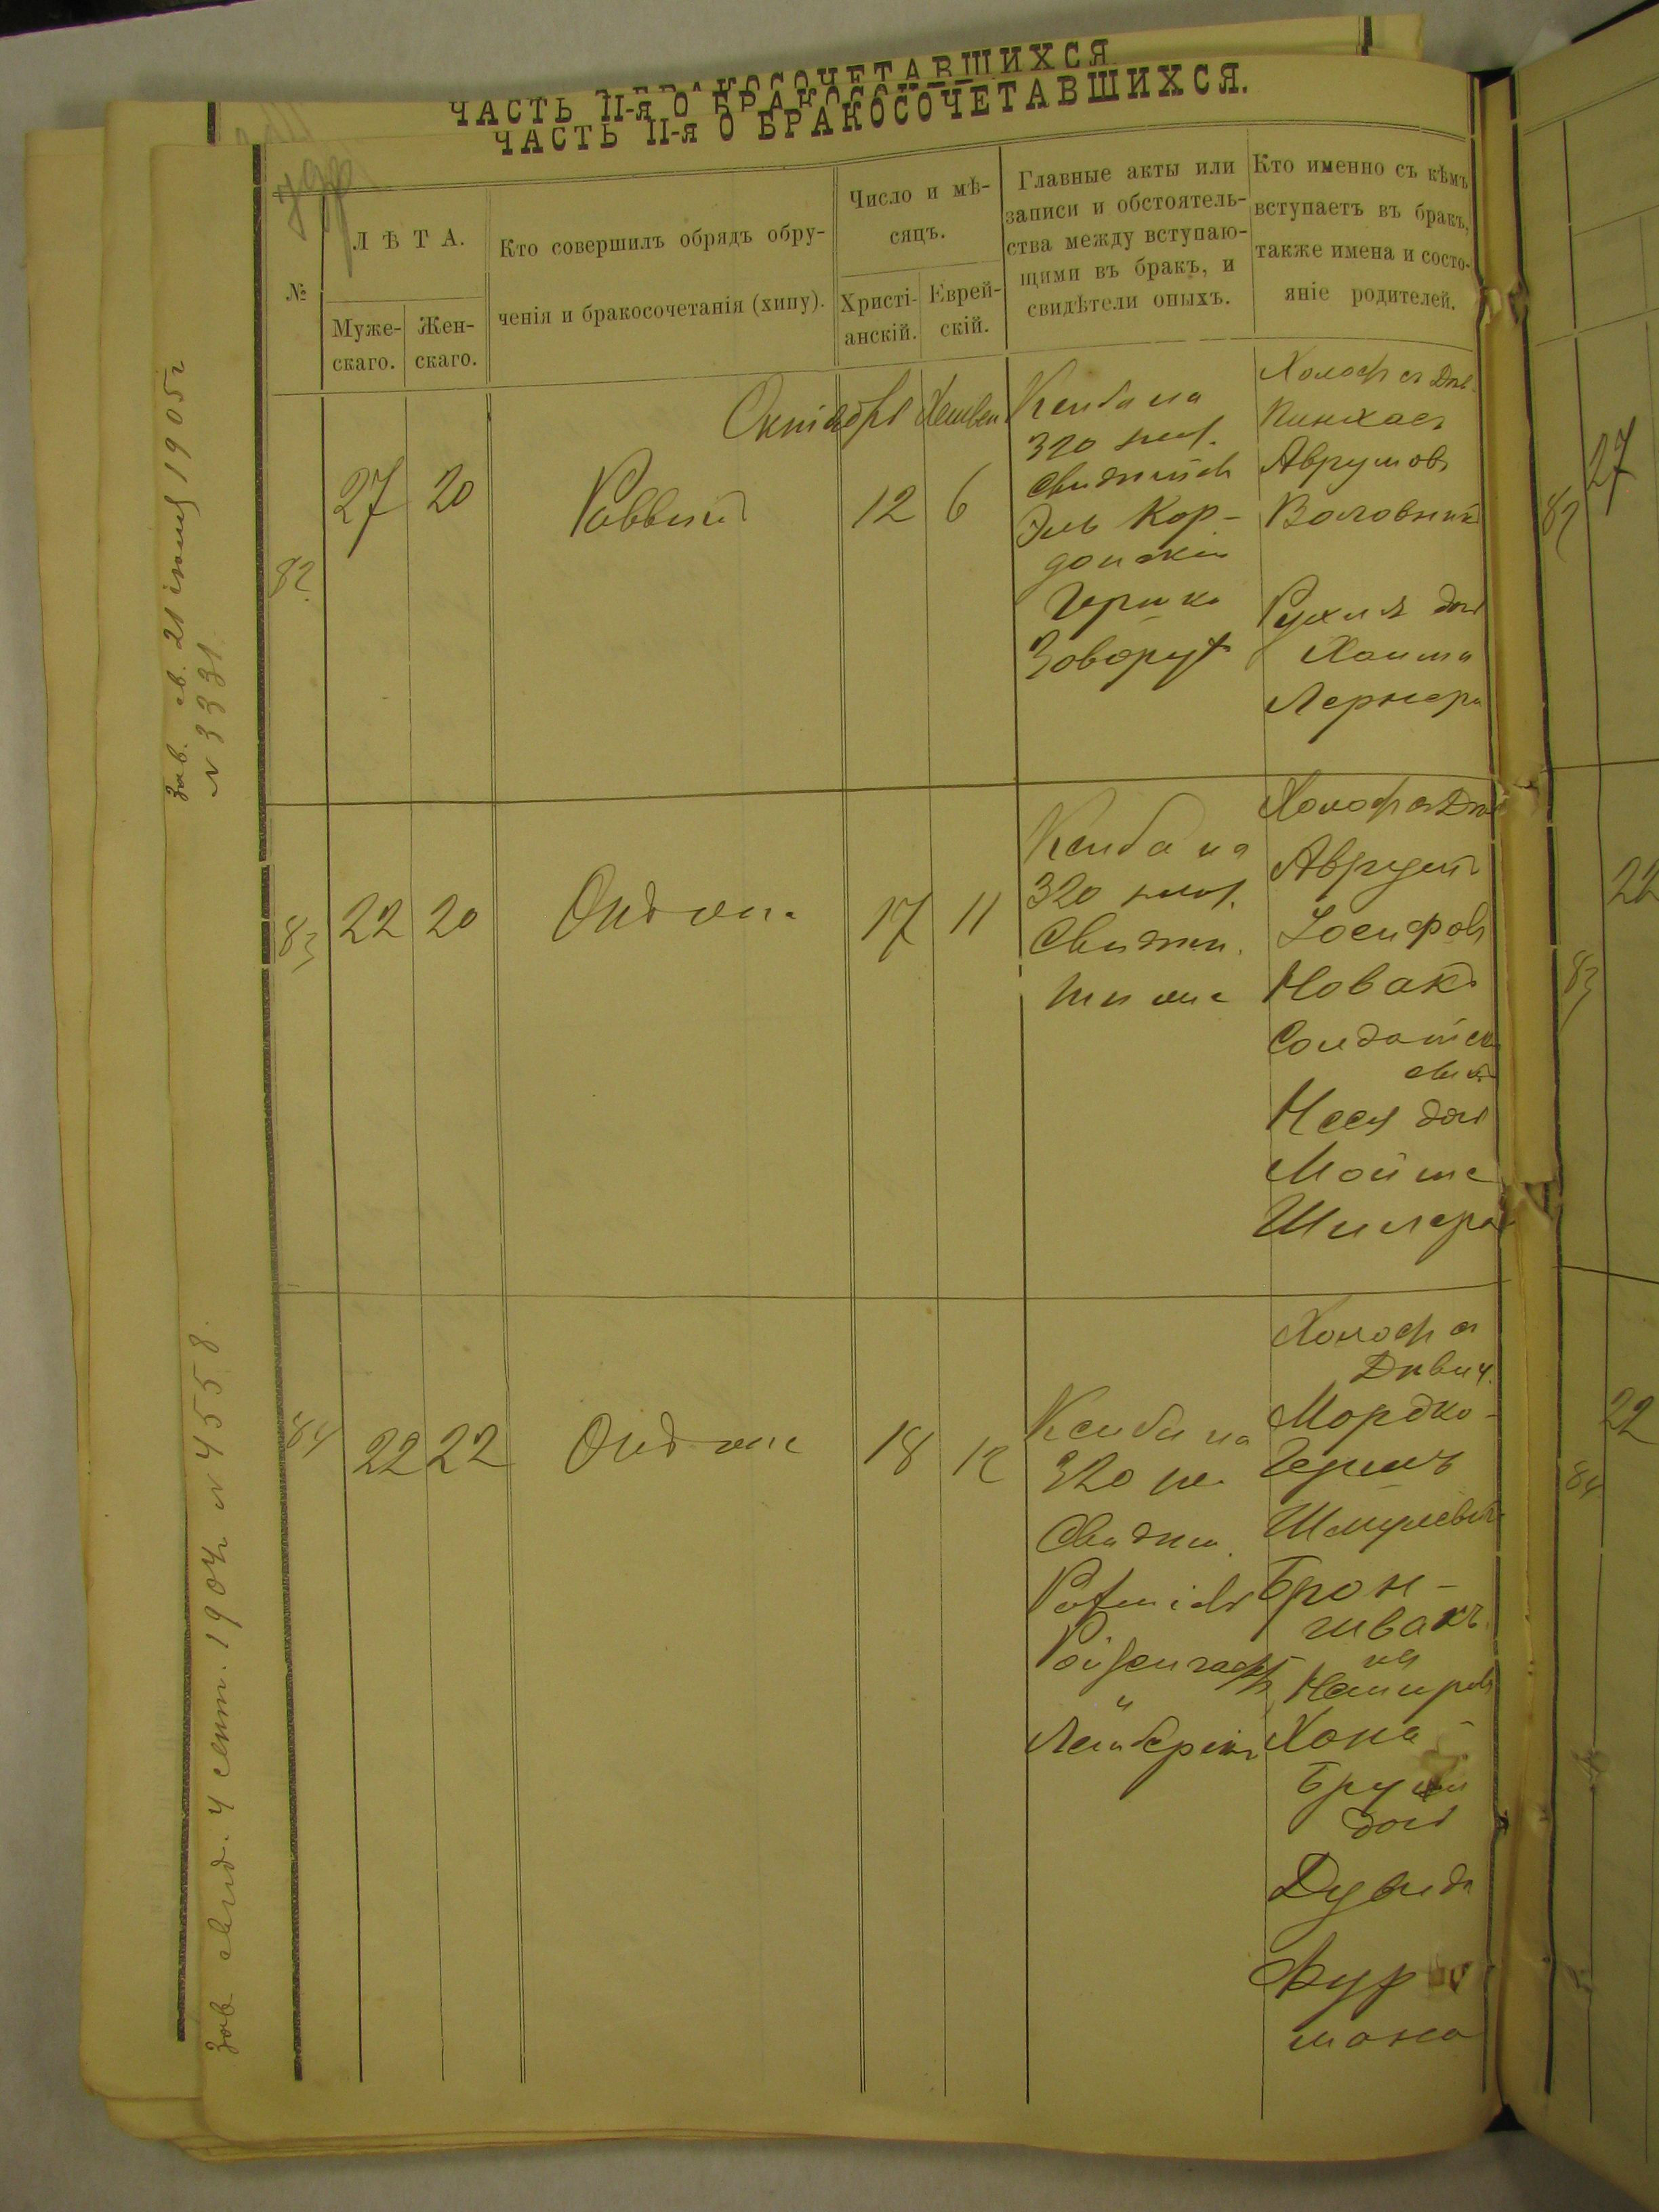 ЧАСТЬ II-я О БРАКОСОЧЕТАВШИХСЯ
ЧАСТЬ II-я О БРАКОСОЧЕТАВШИХСЯ.
№
ЛѢТА.
Муже-
скаго.
Жен-
скаго.
Кто совершилъ обрядъ обру-
ченія и бракосочетанія (хипу).
Число и мѣ-
сяцъ.
Христі-
анскій.
Еврей-
скій.
Главные акты или
записи и обстоятель-
ства между вступаю-
щими въ бракъ, и
свидѣтели оныхъ.
Кто именно съ кѣмъ
вступаетъ въ бракъ,
также имена и состо-
яніе родителей.
Октября
82
27
20
Раввинъ
12
6
Ксиба на
320 зл.
Свидѣтели
Эль Кор-
донскій
Гершко
Заворухъ
Холост съ Дѣв.
Пинхасъ
Аврумовъ
Воловникъ
Рухля дочь
Хаима
Лернера
83
22
20
Онъ же
17
11
Ксиба на
320 зл.
Свидѣт.
ти же
Холост съ Дѣв
Аврумъ
Іосифовъ
Новакъ
Солдатск
Нися дочь
Мойше
Шилера
84
22
22
Онъ же
18
12
Ксиба на
320 зл.
Свидѣт.
Лейбергъ
Холост съ
Дѣвиц.
Мордко-
Гершъ
Шмулевъ
Брон-
швакъ
Хана
дочь
Дувида
Фур
мана
зав. св. 21 іюня 1905 г
№ 3331
зав. свид. 4 сент. 1904 г № 4558.
27
82
22
83
22
84